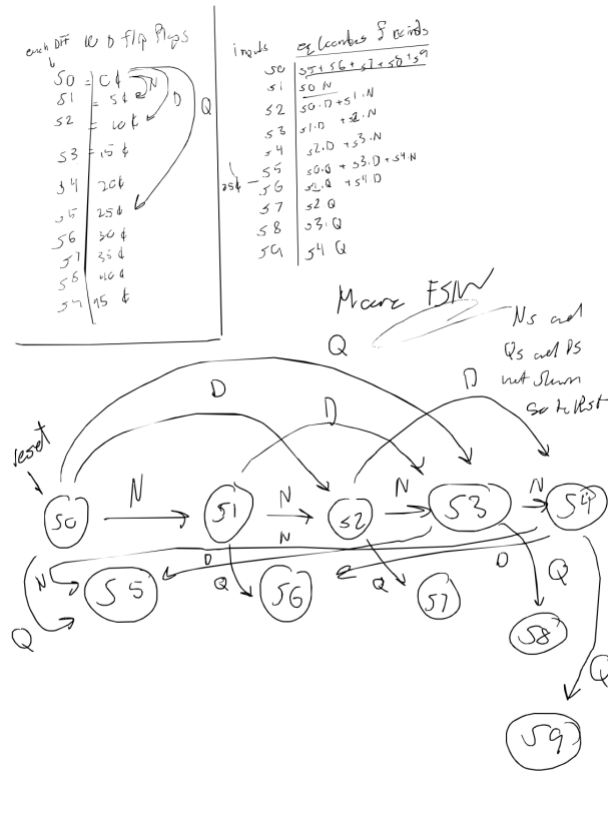 each Dff 10 D flip flops
S0 = 0¢
S1 = 5¢
S2 = 10¢
S3 = 15¢
S4 20¢
S5 25¢
S6 30¢
S7 35¢
S8 40¢
S9 45¢
N
D
Q
inputs
S0 S5+S6+S7+S8+S9
S1 S0 N
S2 S0.D+S1.N
S3 S1.D +S2.N
S4 S2.D +S3.N
S5 S0.Q + S3.D+S4.N
25¢ - S6 S1.Q +S4 D
S7 S2 Q
S8 S3.Q
S9 S4 Q
Moore FSM
Ns and
Qs and Ds
not shown
Q
D
D
D
reset
N
N
N
N
S0
S1
S2
S3
S4
N
D
D
N
Q
S5
Q
S6
Q
S7
Q
S8
Q
S9